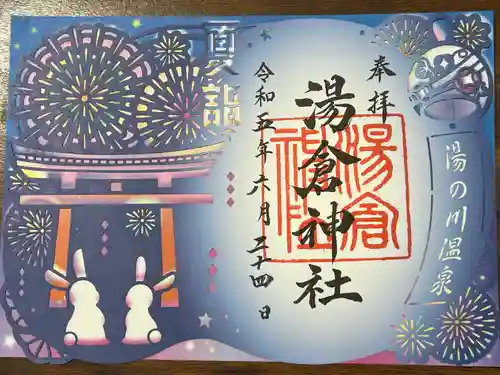 奉拝
湯の川温泉
湯倉神社
湯倉神社
令和五年六月二十四日
夏詣